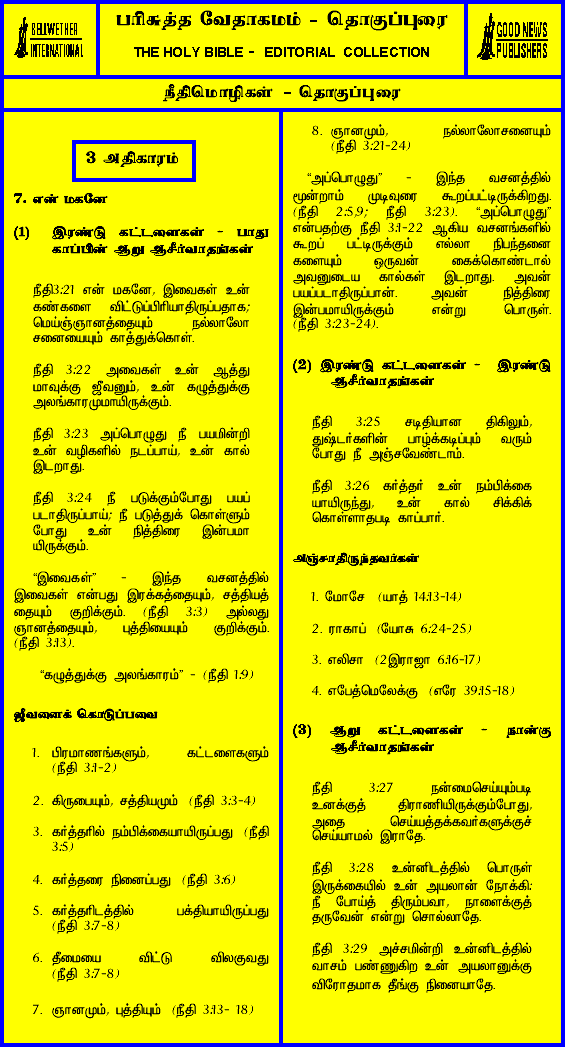 BELLWETHER
INTERNATIONAL
பரிசுத்த வேதாகமம் - தொகுப்புரை
THE HOLY BIBLE - EDITORIAL COLLECTION
GOOD NEWS
PUBLISHERS
நீதிமொழிகள் - தொகுப்புரை
3 அதிகாரம்
7. என் மகனே
(1) இரண்டு கட்டளைகள் - பாது
காப்பின் ஆறு ஆசீர்வாதங்கள்
நீதி3:21 என் மகனே, இவைகள் உன்
கண்களை விட்டுப்பிரியாதிருப்பதாக;
மெய்ஞ்ஞானத்தையும் நல்லாலோ
சனையையும் காத்துக்கொள்.
நீதி 3:22 அவைகள் உன் ஆத்து
மாவுக்கு ஜீவனும், உன் கழுத்துக்கு
அலங்காரமுமாயிருக்கும்.
நீதி 3:23 அப்பொழுது நீ பயமின்றி
உன் வழிகளில் நடப்பாய், உன் கால்
இடறாது.
நீதி 3:24 நீ படுக்கும்போது பயப்
படாதிருப்பாய்; நீ படுத்துக் கொள்ளும்
போது உன் நித்திரை இன்பமா
யிருக்கும்.
“இவைகள்” - இந்த வசனத்தில்
இவைகள் என்பது இரக்கத்தையும், சத்தியத்
தையும் குறிக்கும். (நீதி 3:3) அல்லது
ஞானத்தையும், புத்தியையும் குறிக்கும்.
(நீதி 3:13).
“கழுத்துக்கு அலங்காரம்” - (நீதி 1:9)
ஜீவனைக் கொடுப்பவை
1. பிரமாணங்களும், கட்டளைகளும்
(நீதி 3:1-2)
2. கிருபையும், சத்தியமும் (நீதி 3:3-4)
3. கர்த்தரில் நம்பிக்கையாயிருப்பது (நீதி
3:5)
4. கர்த்தரை நினைப்பது (நீதி 3:6)
5. கர்த்தரிடத்தில் பக்தியாயிருப்பது
(நீதி 3:7-8)
6. தீமையை விட்டு விலகுவது
(நீதி 3:7-8)
7. ஞானமும், புத்தியும் (நீதி 3:13- 18)
8. ஞானமும், நல்லாலோசனையும்
(நீதி 3:21-24)
“அப்பொழுது” - இந்த வசனத்தில்
மூன்றாம் முடிவுரை கூறப்பட்டிருக்கிறது.
(நீதி 2:5,9; நீதி 3:23). “அப்பொழுது”
என்பதற்கு நீதி 3:1-22 ஆகிய வசனங்களில்
கூறப் பட்டிருக்கும் எல்லா நிபந்தனை
களையும் ஒருவன் கைக்கொண்டால்
அவனுடைய கால்கள் இடறாது. அவன்
பயப்படாதிருப்பான். அவன் நித்திரை
இன்பமாயிருக்கும் என்று பொருள்.
(நீதி 3:23-24).
(2) இரண்டு கட்டளைகள் - இரண்டு
ஆசீர்வாதங்கள்
நீதி 3:25 சடிதியான திகிலும்,
துஷ்டர்களின் பாழ்க்கடிப்பும் வரும்
போது நீ அஞ்சவேண்டாம்.
நீதி 3:26 கர்த்தர் உன் நம்பிக்கை
யாயிருந்து, உன் கால் சிக்கிக்
கொள்ளாதபடி காப்பார்.
அஞ்சாதிருந்தவர்கள்
1. மோசே (யாத் 14:13-14)
2. ராகாப் (யோசு 6:24-25)
3. எலிசா (2இராஜா 6:16-17)
4. எபேத்மெலேக்கு (எரே 39:15-18)
(3) ஆறு கட்டளைகள் - நான்கு
ஆசீர்வாதங்கள்
நீதி 3:27 நன்மைசெய்யும்படி
உனக்குத் திராணியிருக்கும்போது,
அதை செய்யத்தக்கவர்களுக்குச்
செய்யாமல் இராதே.
நீதி 3:28 உன்னிடத்தில் பொருள்
இருக்கையில் உன் அயலானை நோக்கி:
நீ போய்த் திரும்பவா, நாளைக்குத்
தருவேன் என்று சொல்லாதே.
நீதி 3:29 அச்சமின்றி உன்னிடத்தில்
வாசம் பண்ணுகிற உன் அயலானுக்கு
விரோதமாக தீங்கு நினையாதே.